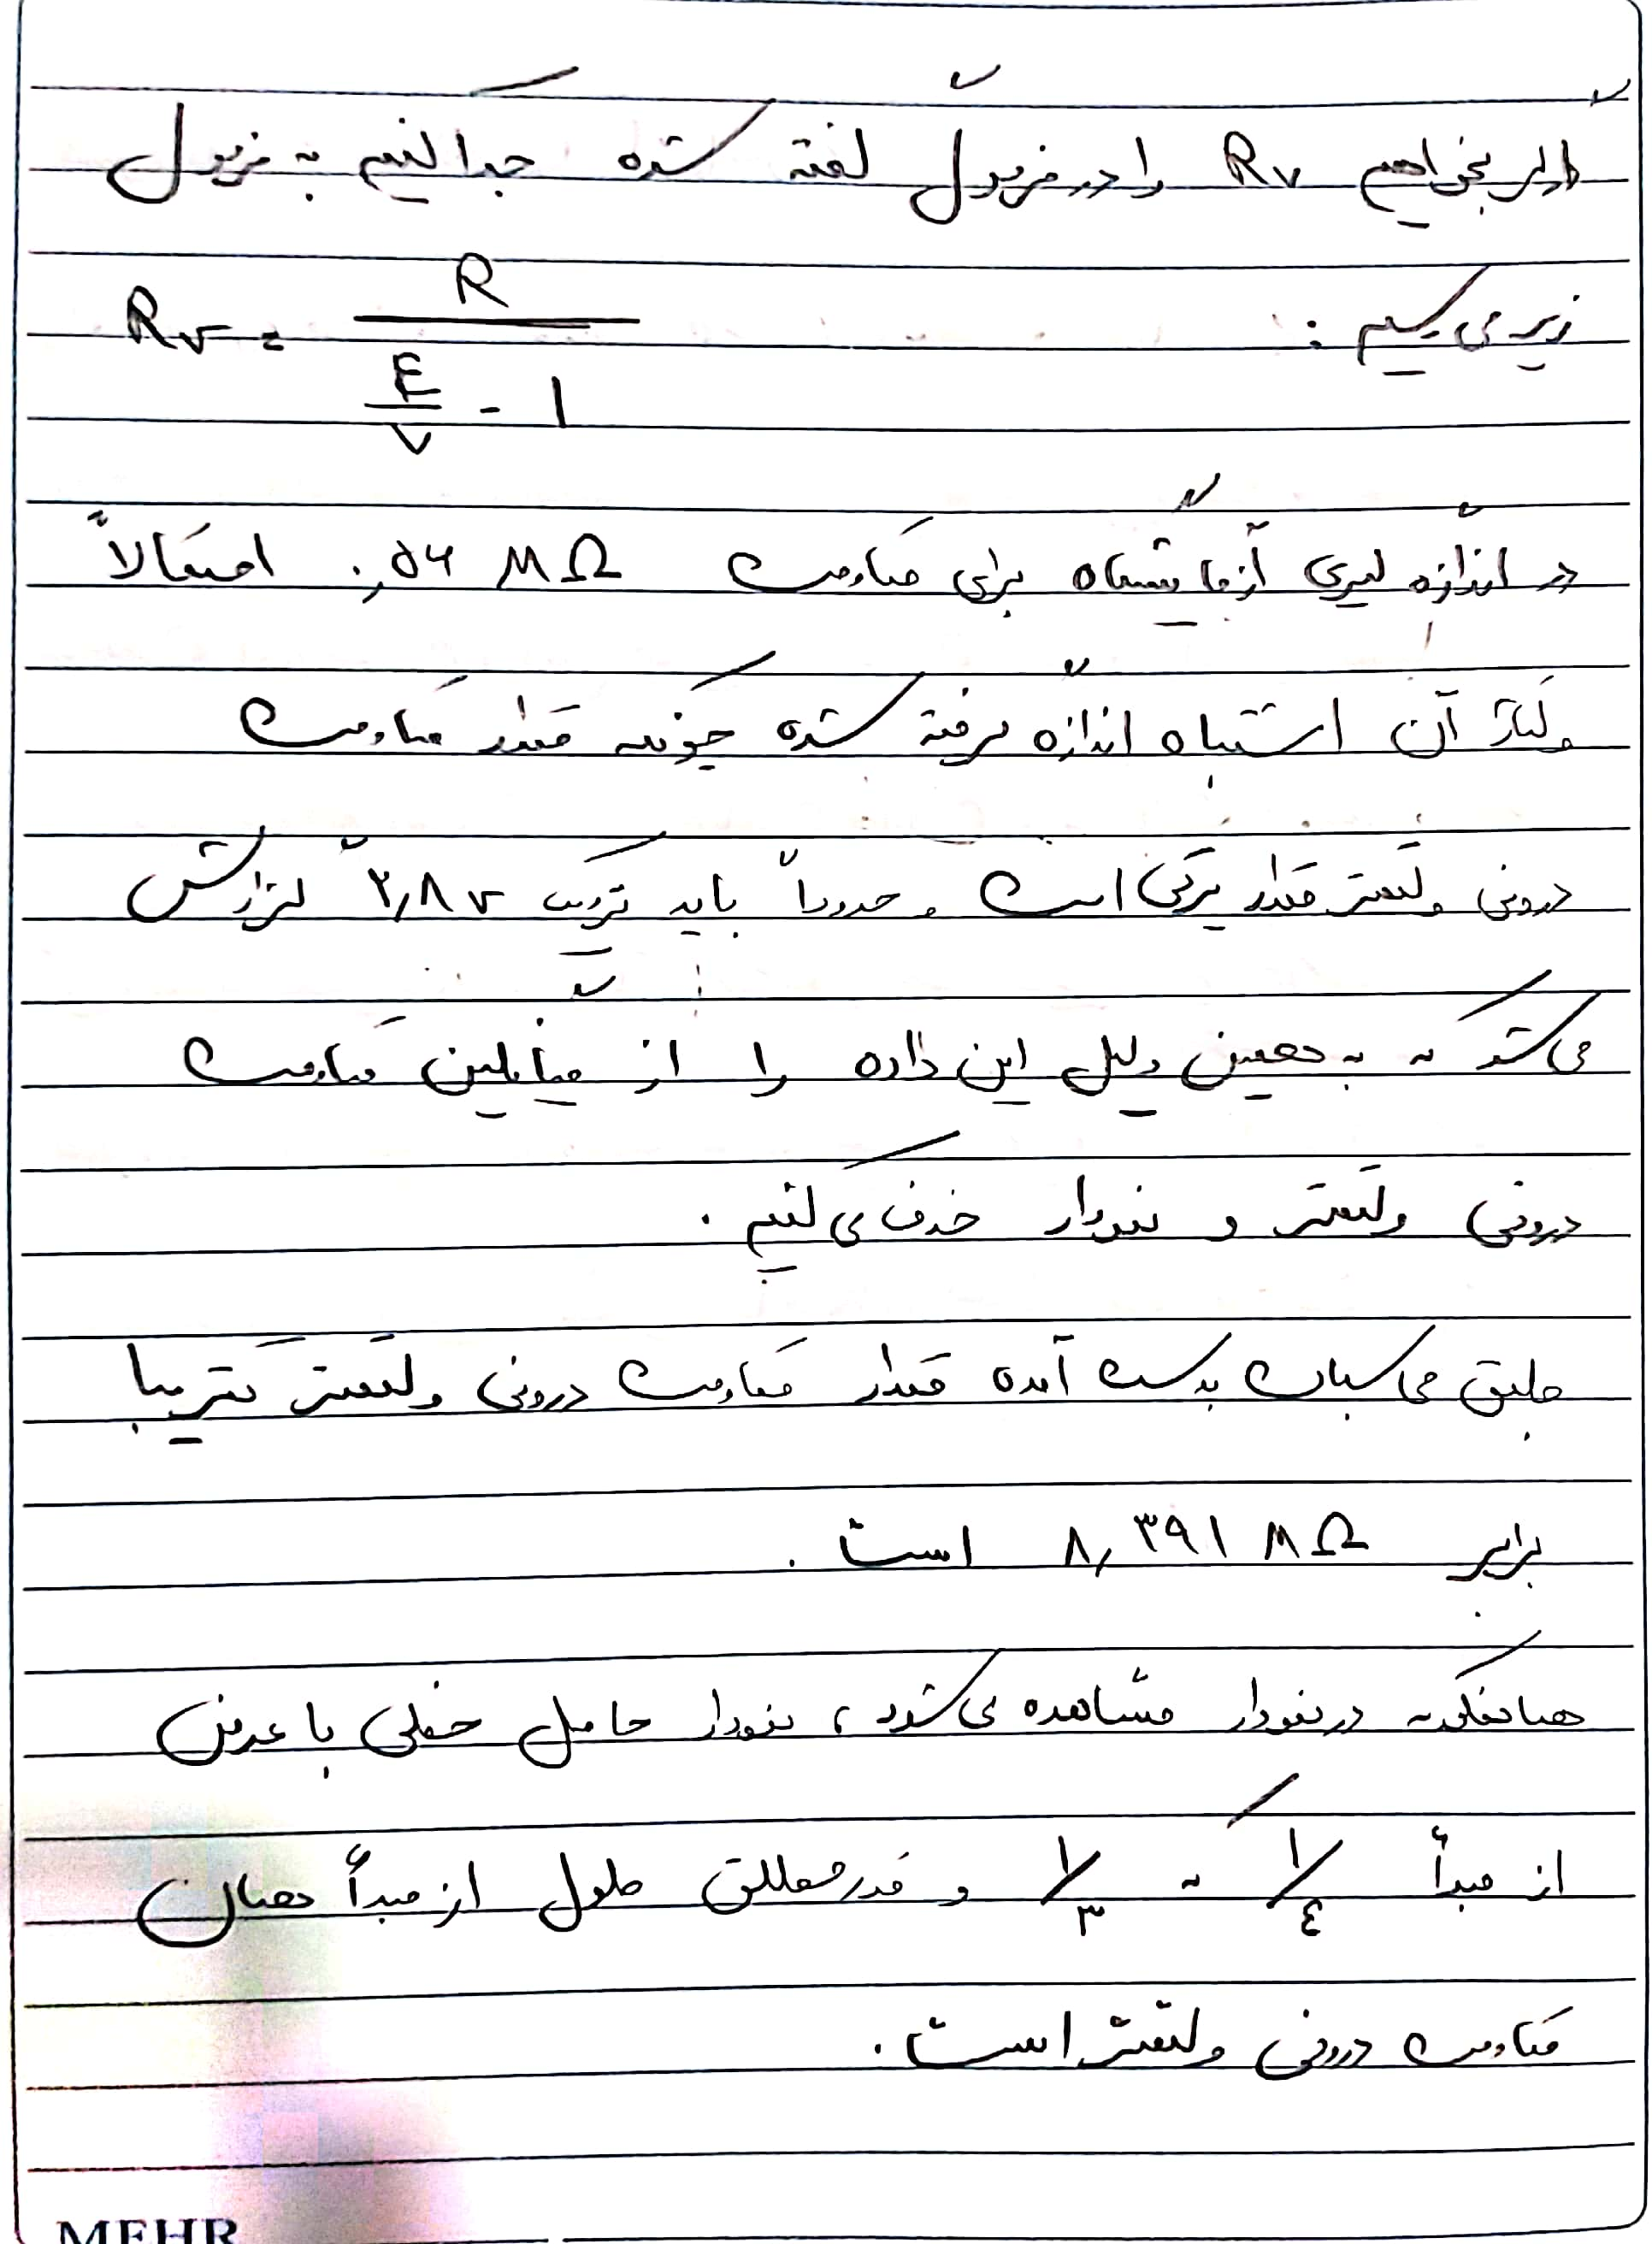 اگر بخواهیم Rv را در فرمول گفته شده جدا کنیم به فرمول
زیر می رسیم : Rv = R / (E/V - 1)
در اندازه گیری آزمایشگاه برای مقاومت ۰٫۵۶ MΩ احتمالاً
ولتاژ آن اشتباه اندازه گرفته شده چونکه مقدار مقاومت
درونی ولتمتر مقدار بزرگی است و حدوداً باید نزدیک ۳٫۸ v گزارش
می شد که به همین دلیل این داده را از میانگین مقاومت
درونی ولتمتر و نمودار حذف می کنیم .
طبق محاسبات بدست آمده مقدار مقاومت درونی ولتمتر تقریبا
برابر ۸٫۳۹۱ MΩ است .
همانطور که در نمودار مشاهده می شود ، نمودار حاصل خطی با عرض
از مبدأ ۱/۴ که ۱/۳ و قدرمطلق طول از مبدأ همان
مقاومت درونی ولتمتر است .
MEHR